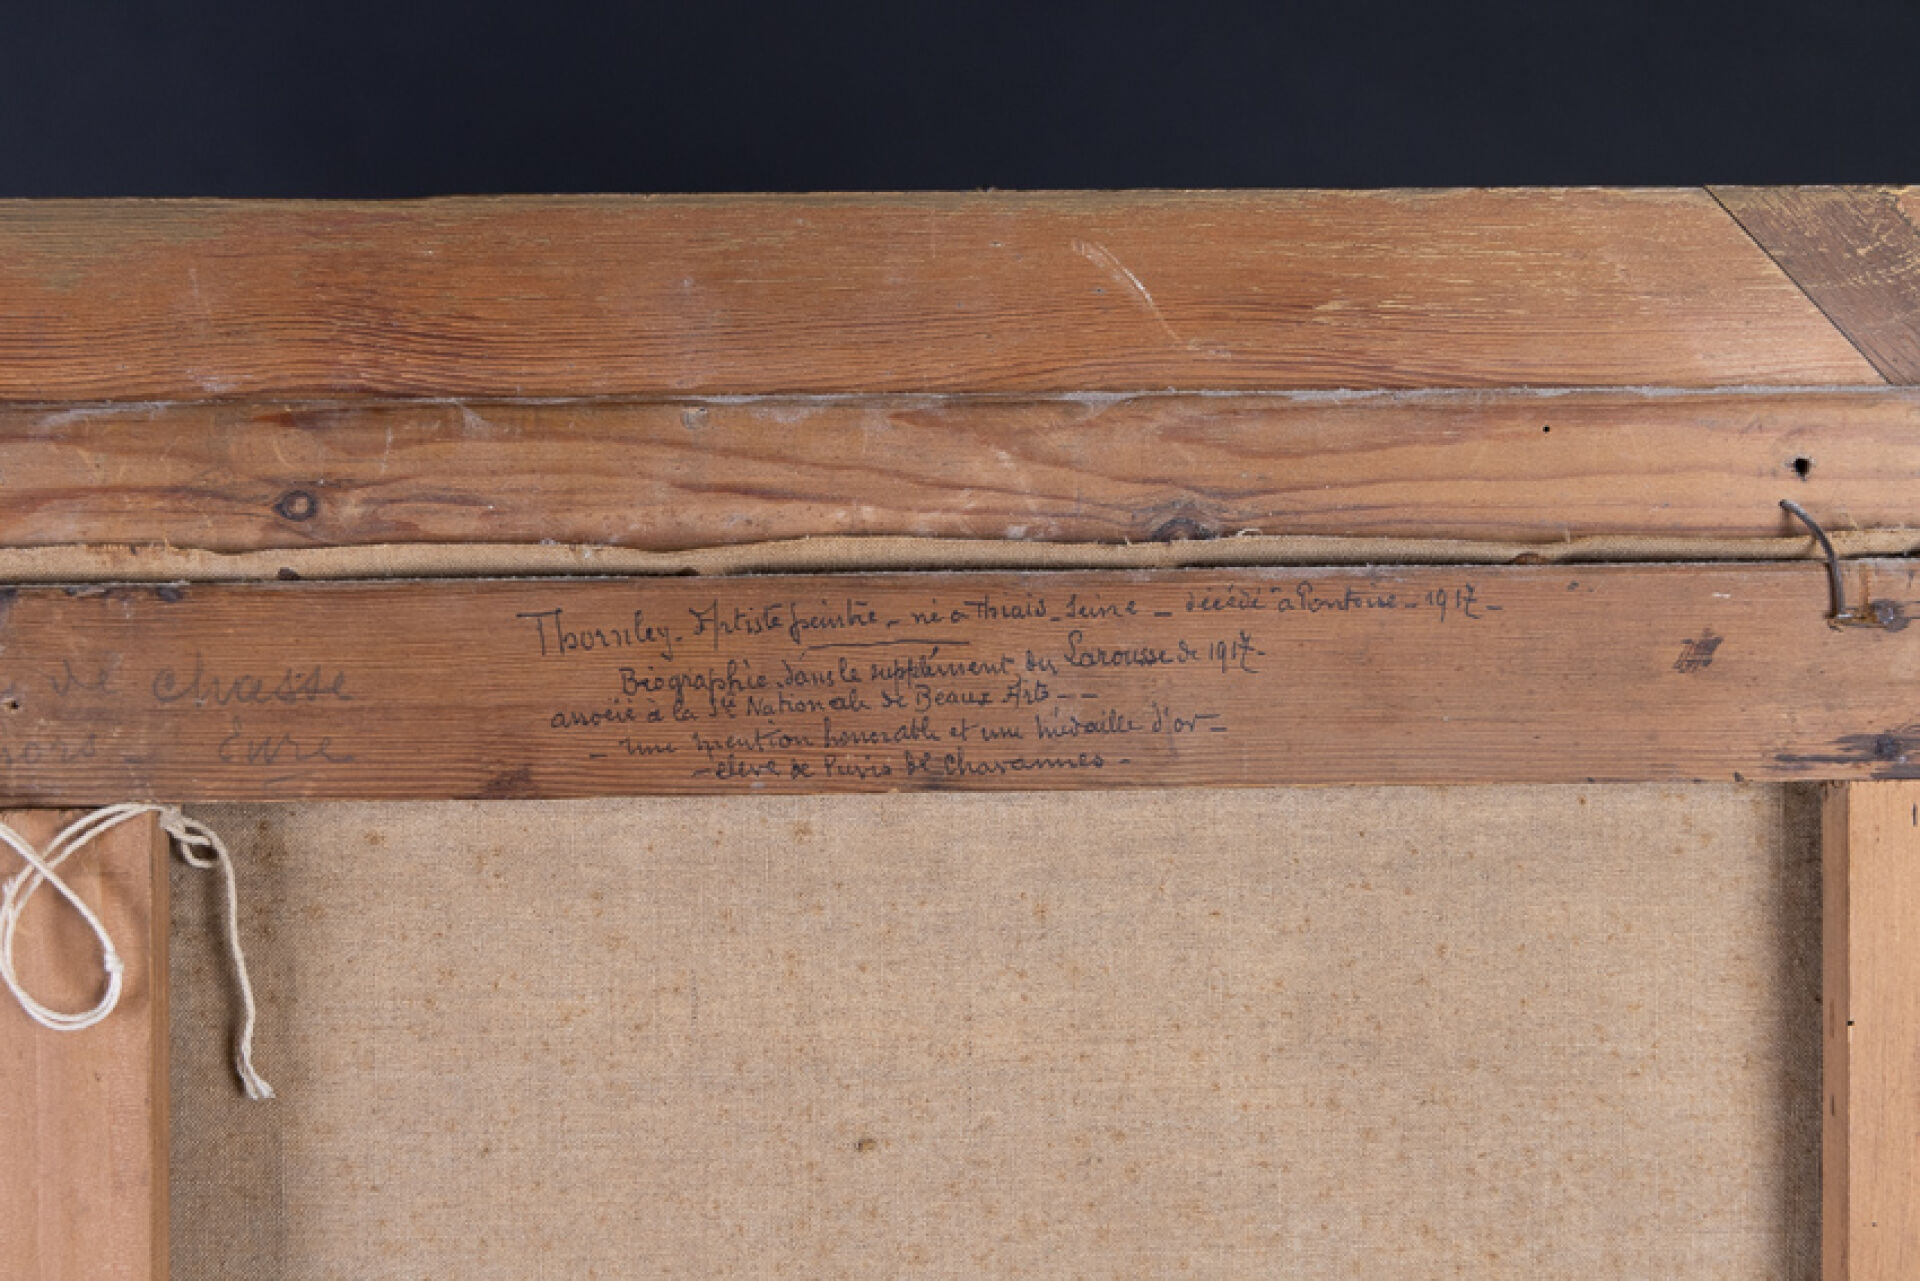 Thornley - Artiste peintre - né a Thiais - Seine - décédé a Pontoise - 1917 -
Biographie dans le supplément du Larousse de 1917 -
associé à la Sté Nationale de Beaux Arts - -
- une mention honorable et une médaille d'or -
- élève de Puvis de Chavannes -
de chasse
Eure